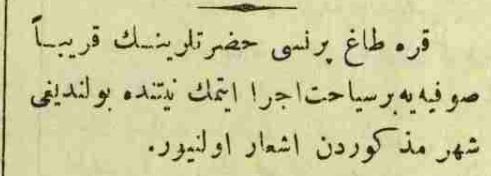 قره طاغ پرنسى حضرتلرينـك قريبـاً
صوفيه‌يه بر سياحت اجرا ايتمك نيتنده بولنديغى
شهر مذكوردن اشعار اولنيور.